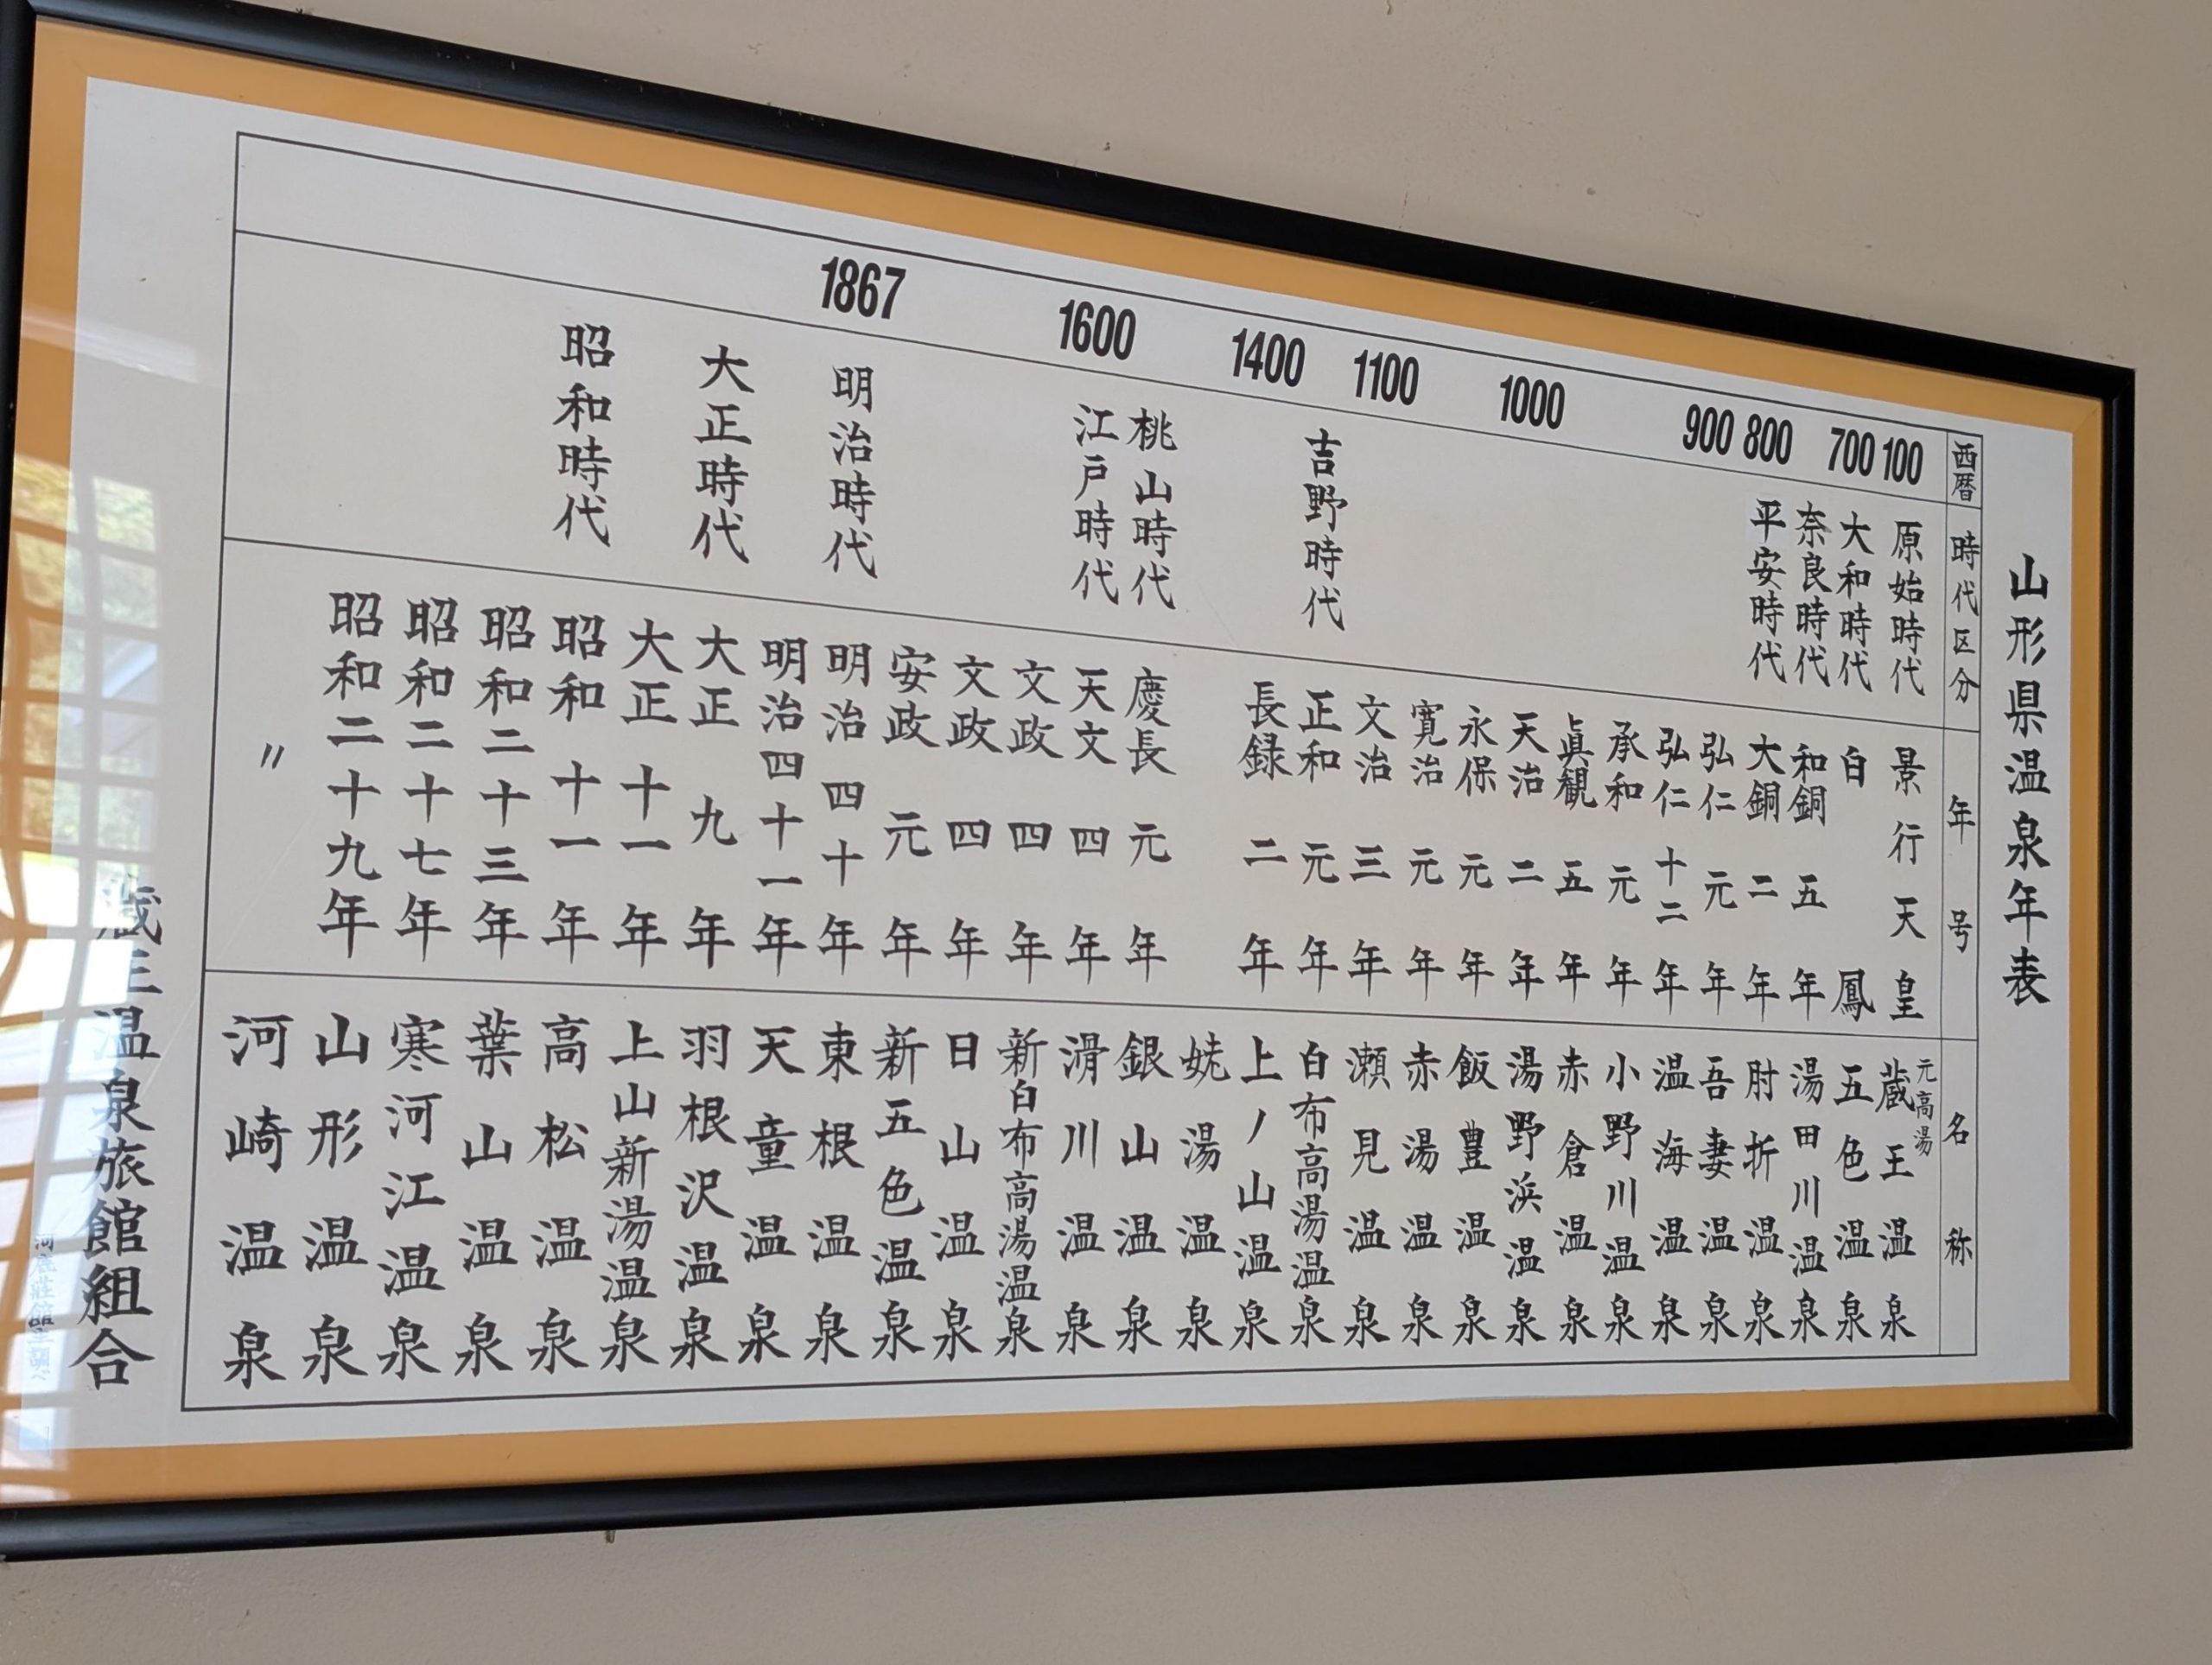 山形県温泉年表
西暦 時代区分 年号 名称
100 原始時代 景行天皇 元高湯 蔵王温泉
700 大和時代 白鳳 五色温泉
奈良時代 和銅五年 湯田川温泉
800 平安時代 大銅二年 肘折温泉
900 弘仁元年 吾妻温泉
弘仁十二年 温海温泉
承和元年 小野川温泉
眞観五年 赤倉温泉
1000 天治二年 湯野浜温泉
永保元年 飯豊温泉
寛治元年 赤湯温泉
1100 文治三年 瀬見温泉
吉野時代 正和元年 白布高湯温泉
1400 長録二年 上ノ山温泉
姥湯温泉
桃山時代 慶長元年 銀山温泉
1600 江戸時代 天文四年 滑川温泉
文政四年 新白布高湯温泉
文政四年 日山温泉
安政元年 新五色温泉
1867 明治時代 明治四十年 東根温泉
明治四十一年 天童温泉
大正時代 大正九年 羽根沢温泉
大正十一年 上山新湯温泉
昭和時代 昭和十一年 高松温泉
昭和二十三年 葉山温泉
昭和二十七年 寒河江温泉
昭和二十九年 山形温泉
〃 河崎温泉
蔵王温泉旅館組合